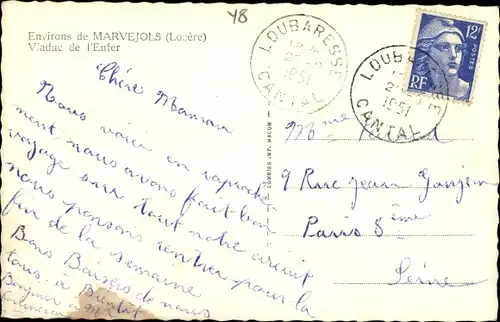 Y8
Environs de MARVEJOLS (Lozère)
Viaduc de l'Enfer
Chère Maman
Nous voici en
ment nous avons fait bon
voyage sur tout notre circuit
nous pensons rentrer pour la
fin de la semaine
Bons Baisers de nous
tous. à Bientôt
Bonjour à
COMBIER IMP. MACON
LOUBARESSE
1951
CANTAL
12F
POSTES
RF
LOUBARESSE
1951
CANTAL
Mme
9 Rue Jean Goujon
Paris 8ème
Seine